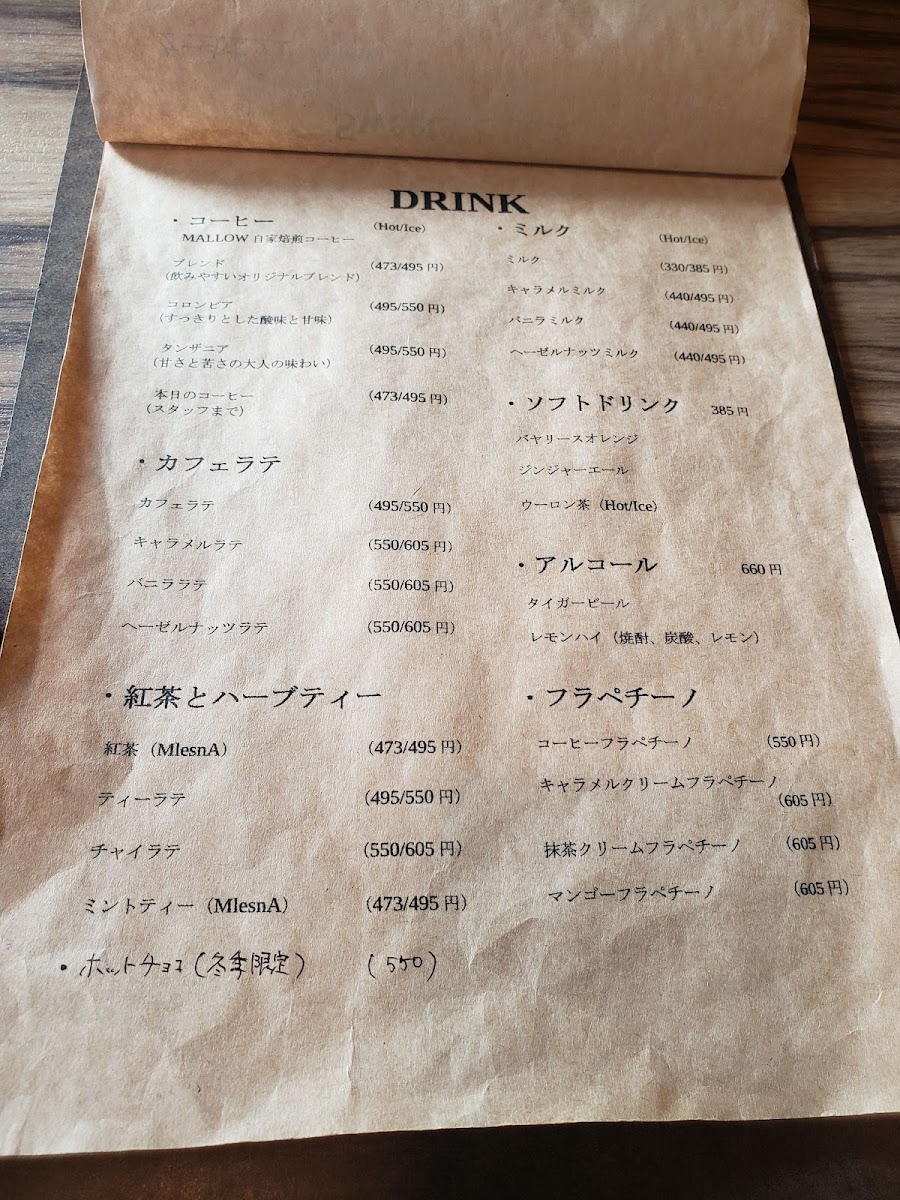 DRINK
・コーヒー (Hot/Ice)
MALLOW 自家焙煎コーヒー
ブレンド (473/495 円)
(飲みやすいオリジナルブレンド)
コロンビア (495/550 円)
(すっきりとした酸味と甘味)
タンザニア (495/550 円)
(甘さと苦さの大人の味わい)
本日のコーヒー (473/495 円)
(スタッフまで)
・カフェラテ
カフェラテ (495/550 円)
キャラメルラテ (550/605 円)
バニララテ (550/605 円)
ヘーゼルナッツラテ (550/605 円)
・紅茶とハーブティー
紅茶(MlesnA) (473/495 円)
ティーラテ (495/550 円)
チャイラテ (550/605 円)
ミントティー(MlesnA) (473/495 円)
・ホットチョコ(冬季限定) (550)
・ミルク (Hot/Ice)
ミルク (330/385 円)
キャラメルミルク (440/495 円)
バニラミルク (440/495 円)
ヘーゼルナッツミルク (440/495 円)
・ソフトドリンク 385 円
バヤリースオレンジ
ジンジャーエール
ウーロン茶(Hot/Ice)
・アルコール 660 円
タイガービール
レモンハイ(焼酎、炭酸、レモン)
・フラペチーノ
コーヒーフラペチーノ (550 円)
キャラメルクリームフラペチーノ
(605 円)
抹茶クリームフラペチーノ (605 円)
マンゴーフラペチーノ (605 円)